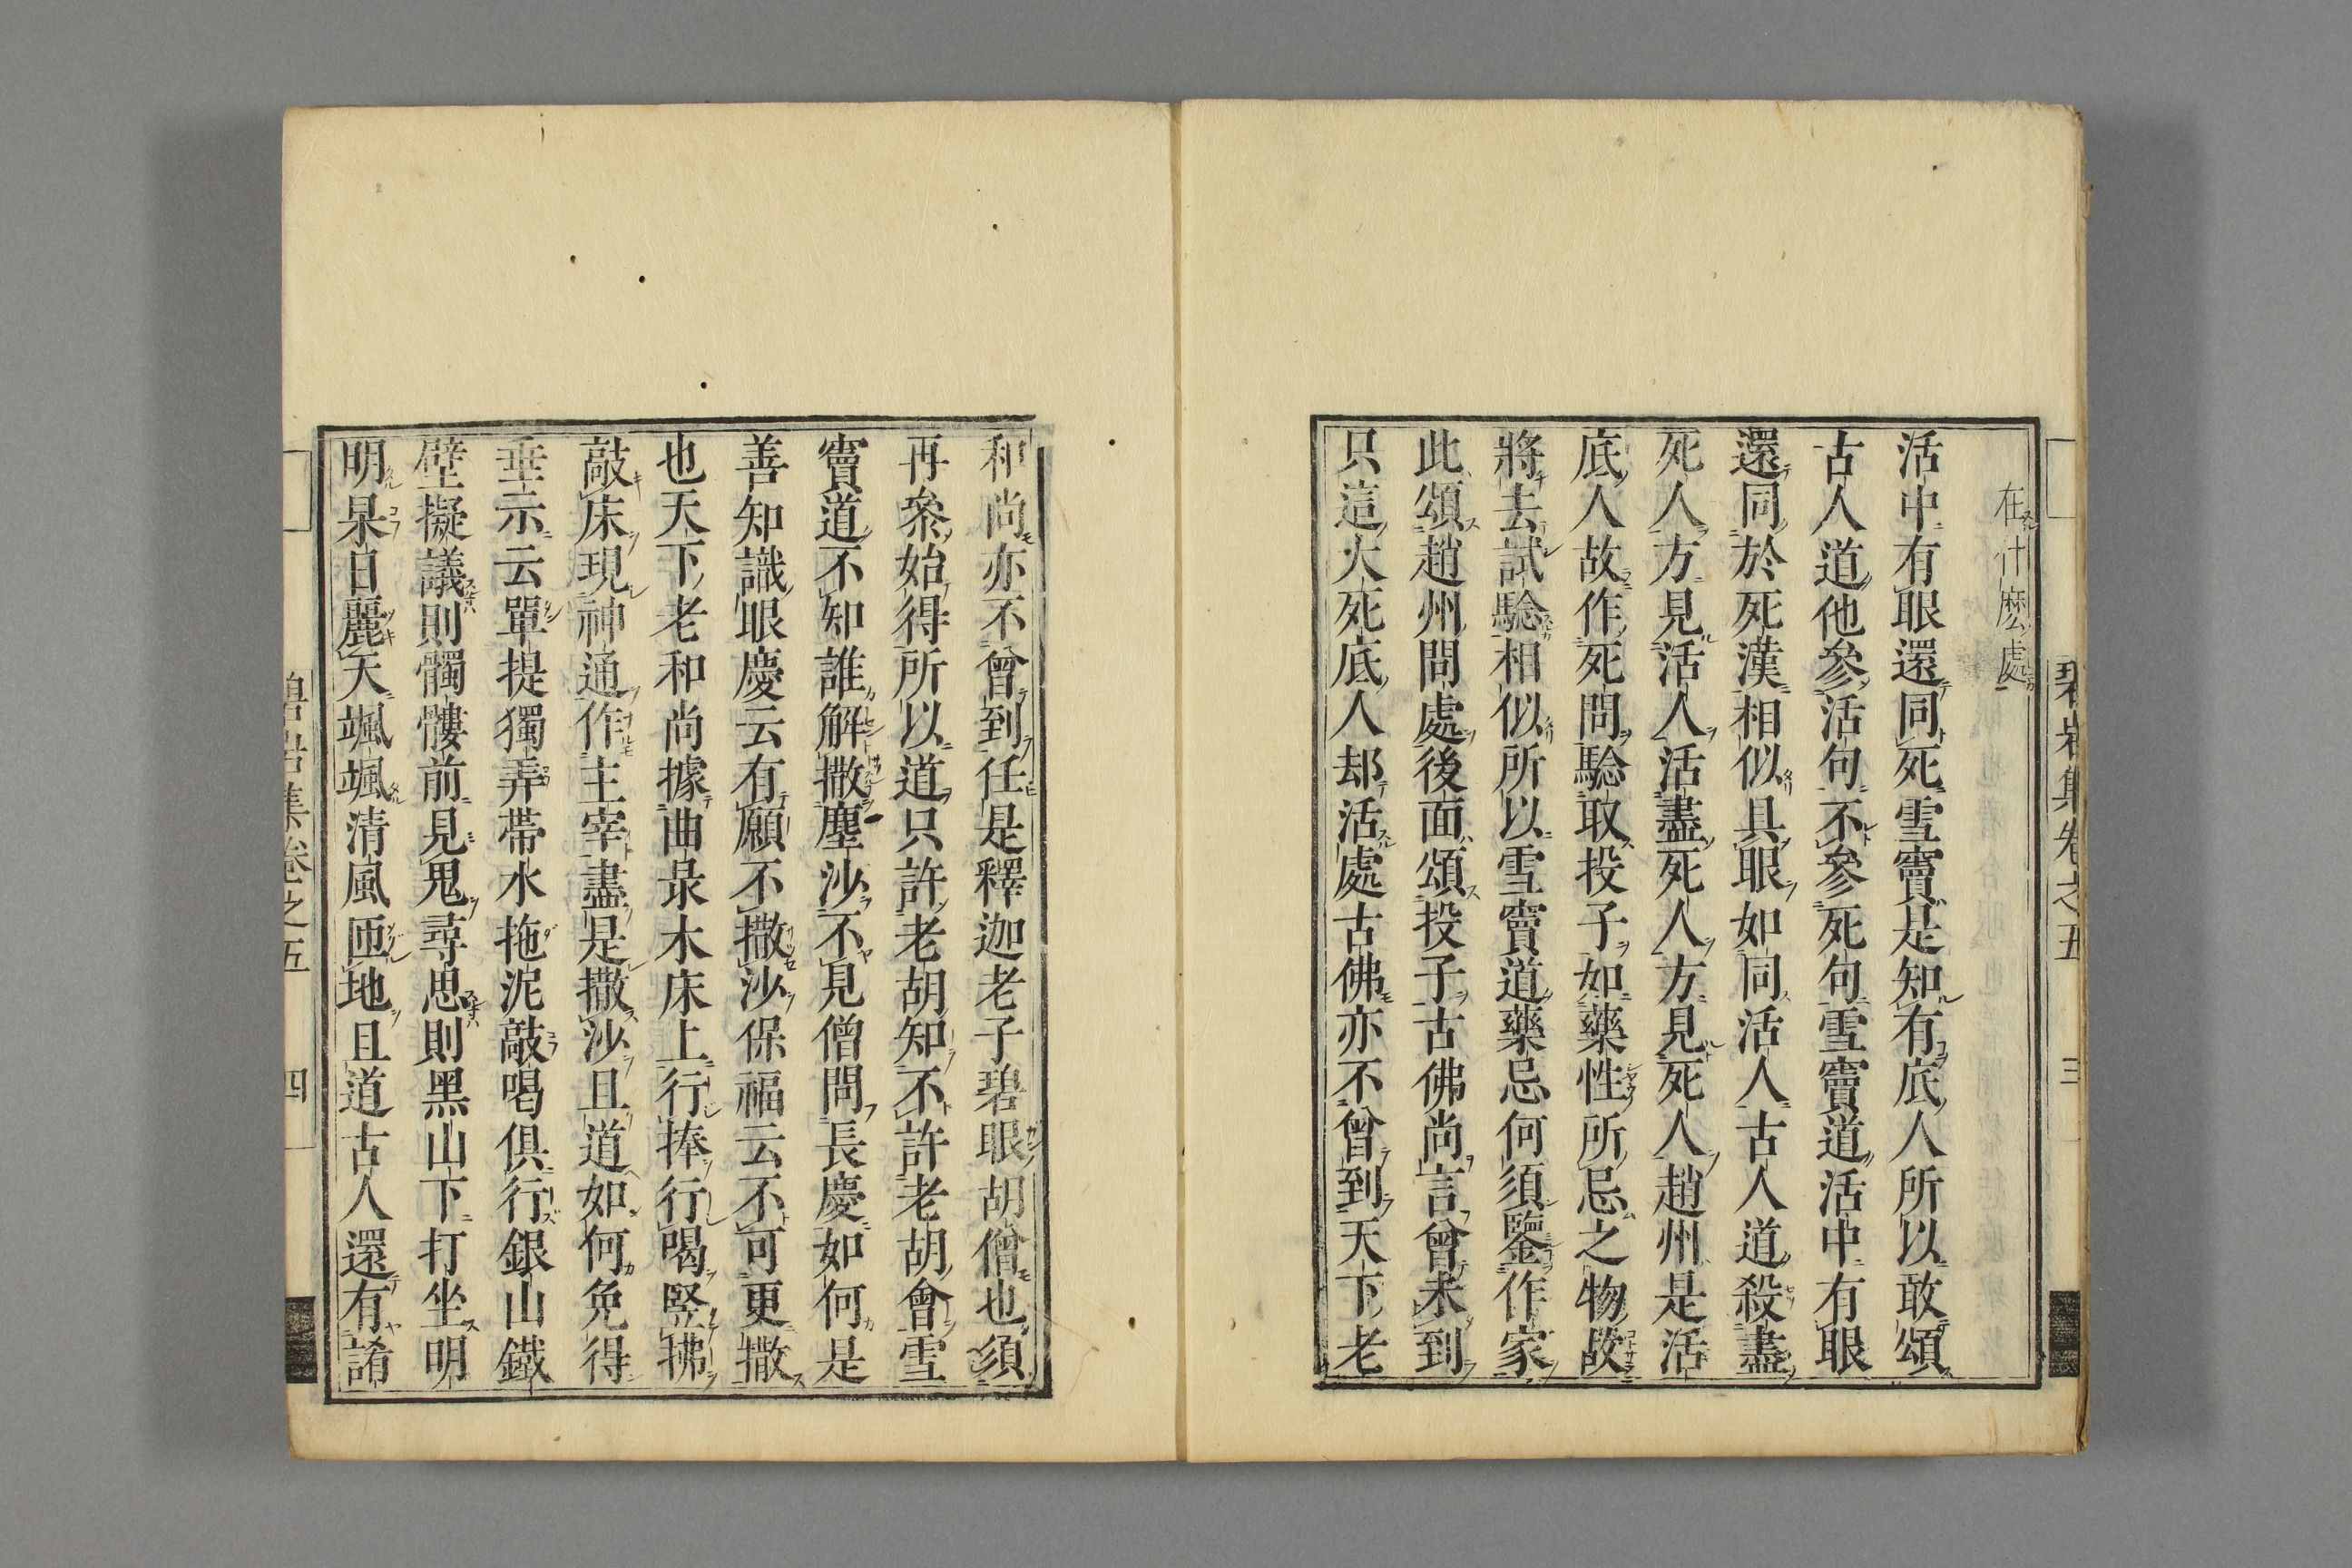 碧岩集卷之五 三
在什麽處
活中有眼還同死雪竇是知有底人所以敢頌
古人道他參活句不參死句雪竇道活中有眼
還同於死漢相似具眼如同活人古人道殺盡
死人方見活人活盡死人方見死人趙州是活
底人故作死問驗取投子如藥性所忌之物故
將去試驗相似所以雪竇道藥忌何須鑒作家
此頌趙州問處後面頌投子古佛尚言曾未到
只這大死底人却活處古佛亦不曾到天下老
和尚亦不曾到任是釋迦老子碧眼胡僧也須
再參始得所以道只許老胡知不許老胡會雪
竇道不知誰解撒塵沙不見僧問長慶如何是
善知識眼慶云有願不撒沙保福云不可更撒
也天下老和尚據曲彔木床上行捧行喝竪拂
敲床現神通作主宰盡是撒沙且道如何免得
垂示云單提獨弄帶水拖泥敲唱俱行銀山鐵
壁擬議則髑髏前見鬼尋思則黑山下打坐明
明杲日麗天颯颯清風匝地且道古人還有誵
碧岩集卷之五 四